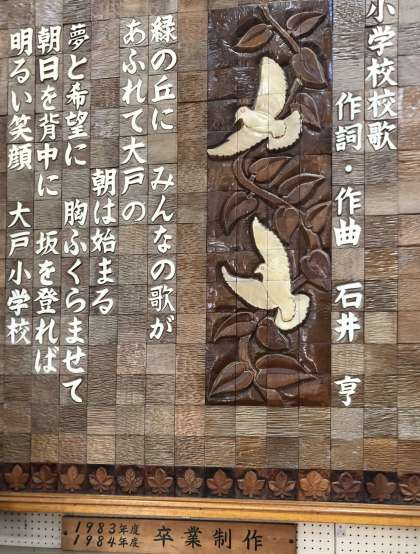 小学校校歌
作詞・作曲 石井 亨
緑の丘に みんなの歌が
あふれて大戸の
朝は始まる
夢と希望に 胸ふくらませて
朝日を背中に 坂を登れば
明るい笑顔 大戸小学校
1983年度
1984年度 卒業制作